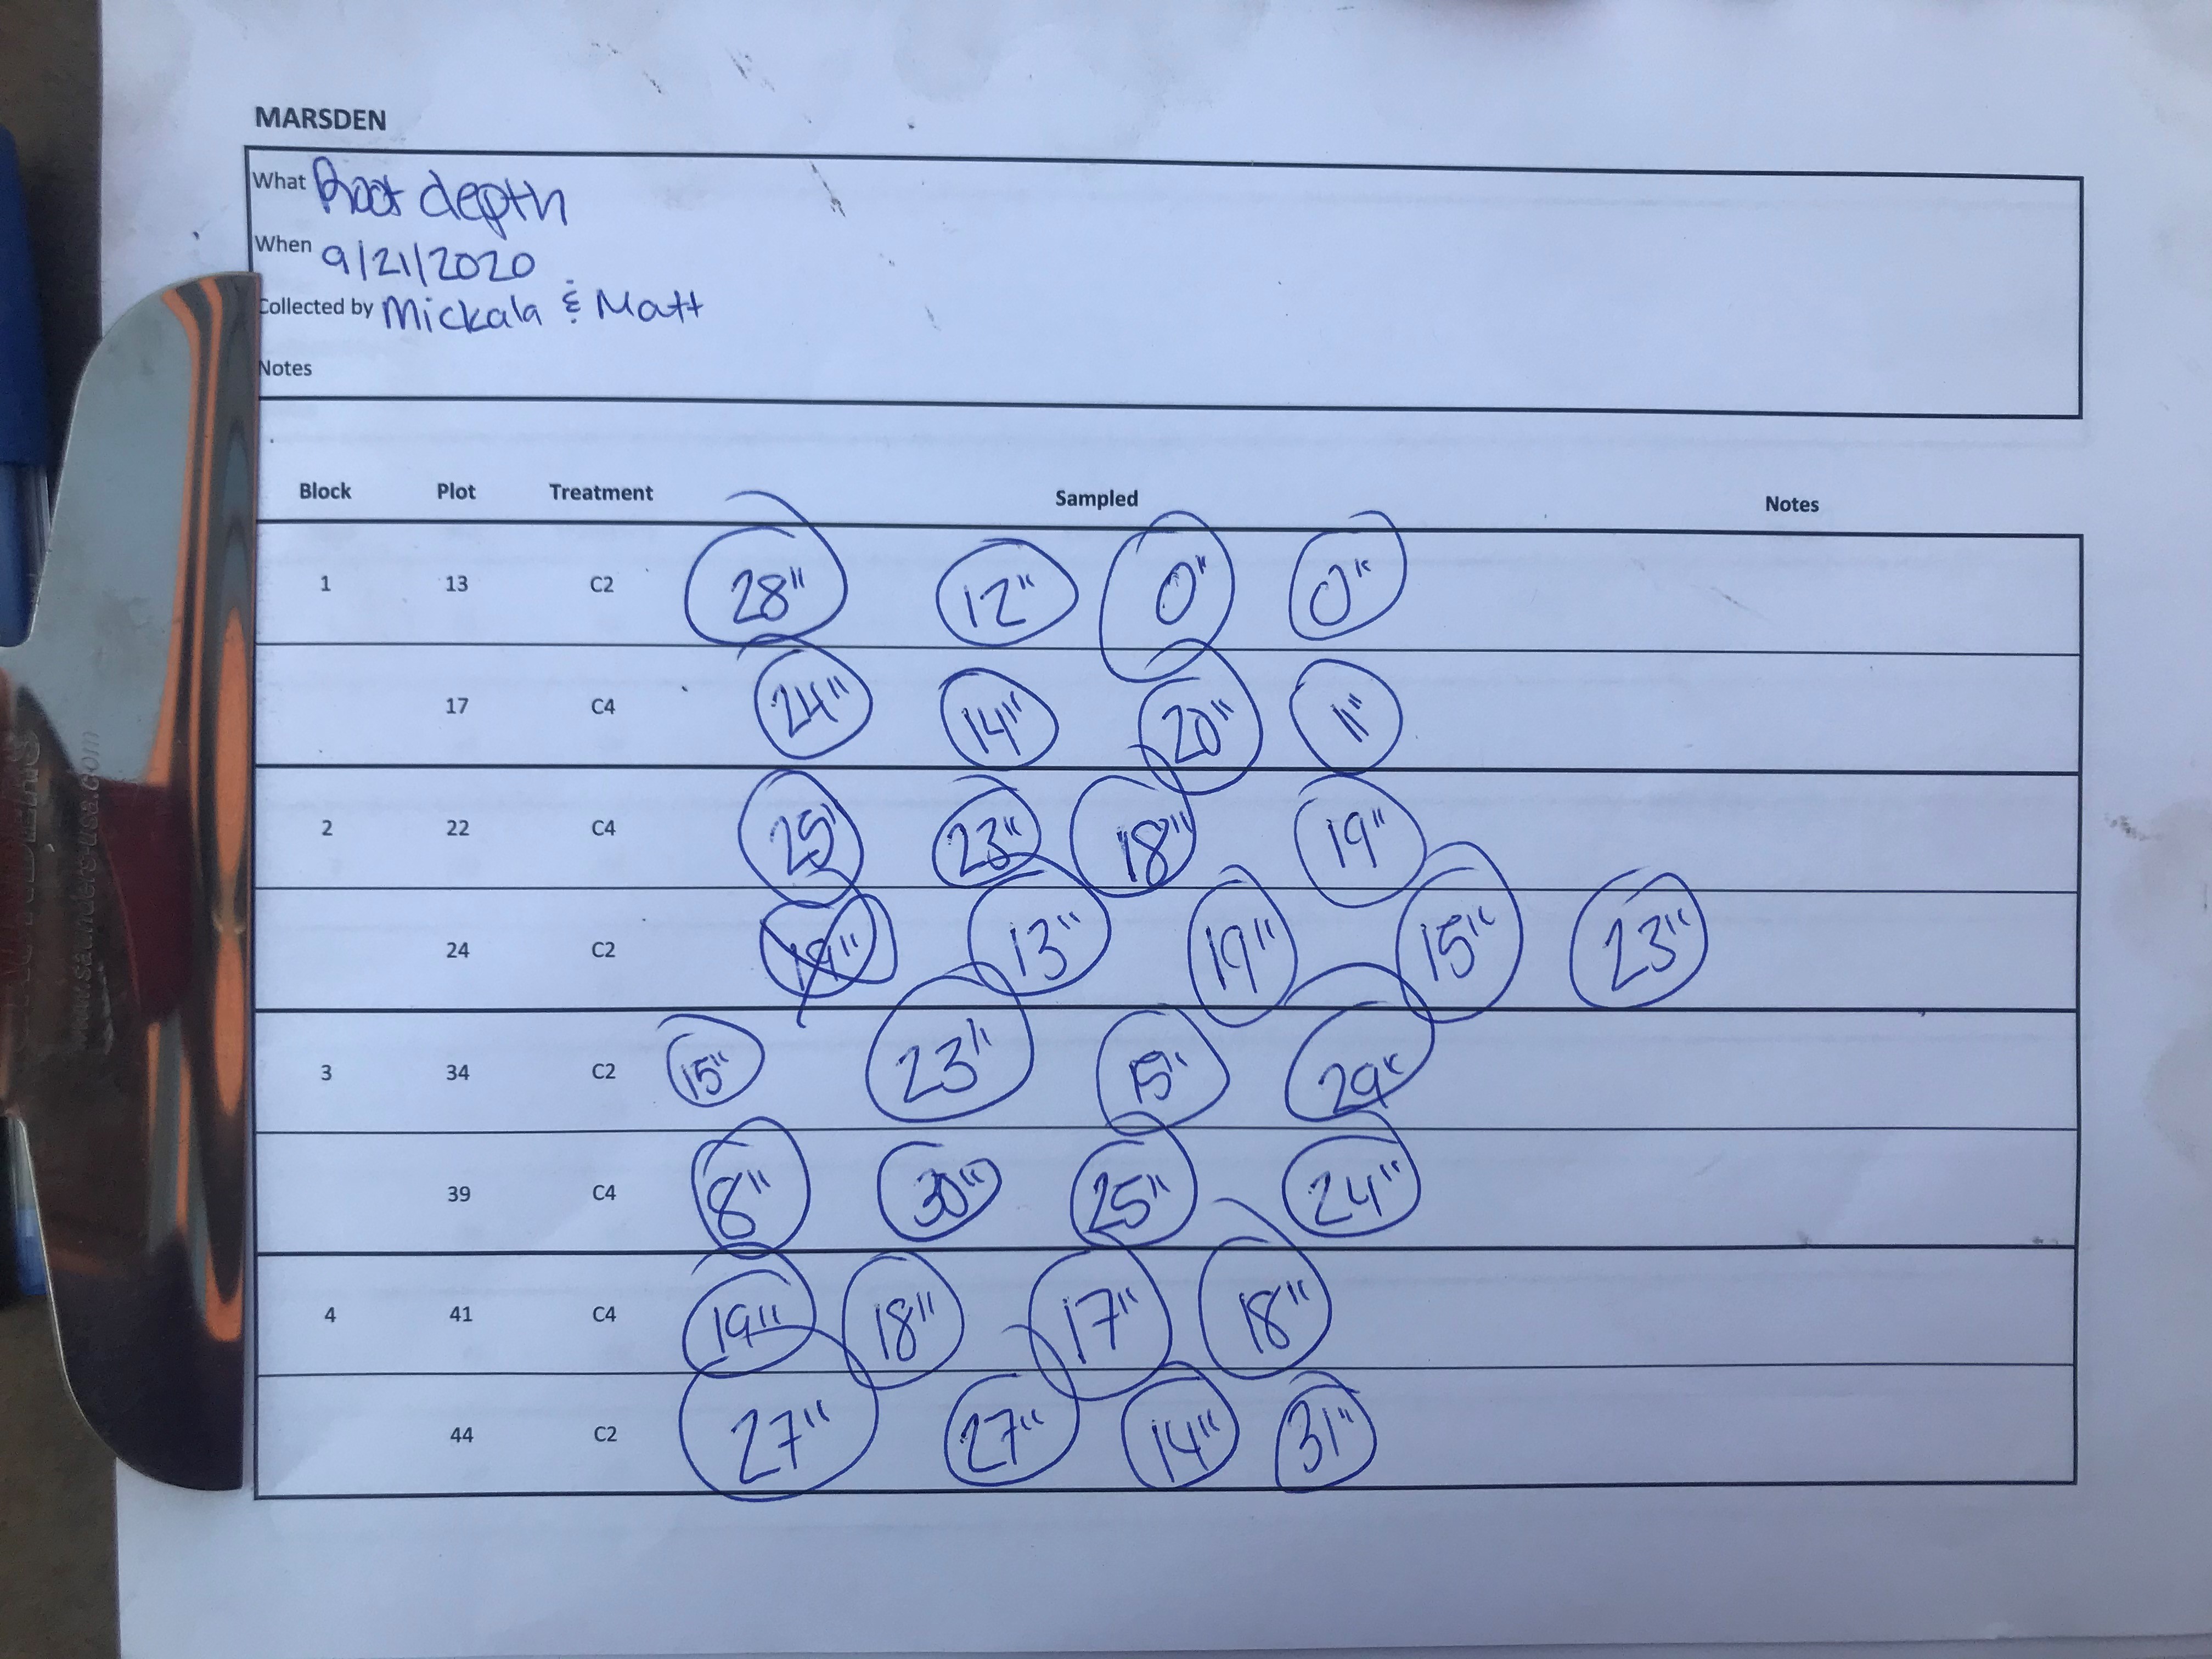 MARSDEN
What Root depth
When 9/21/2020
Collected by Mickala & Matt
Notes
Block Plot Treatment Sampled Notes
1 13 C2 28" 12" 0" 0"
17 C4 24" 14" 20" 11"
2 22 C4 25" 23" 18" 19"
24 C2 19" 13" 19" 15" 23"
3 34 C2 15" 23" 15" 29"
39 C4 8" 30" 25" 24"
4 41 C4 19" 18" 17" 18"
44 C2 27" 27" 14" 31"
www.saunders-usa.com